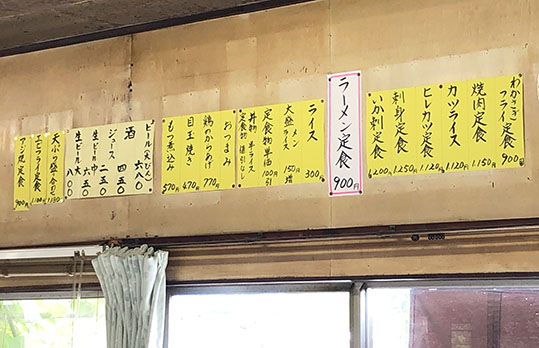 わかさぎフライ定食 900円
焼肉定食 1.150
カツライス 1.120
ヒレカツ定食 1.120
刺身定食 1.250
いか刺定食 1.200
ラーメン定食 900円
ライス 300円
大盛 メン ライス 150円増
定食物単品 100円引
丼物 半ライス
定食物 値引なし
おつまみ
鶏のからあげ 770円
目玉焼き 470円
もつ煮込み 570円
ビール(大びん) 六八〇
酒 四五〇
ジュース 二五〇
生ビール 中 六五〇
生ビール 大 八〇〇
エビフライ定食 1.100